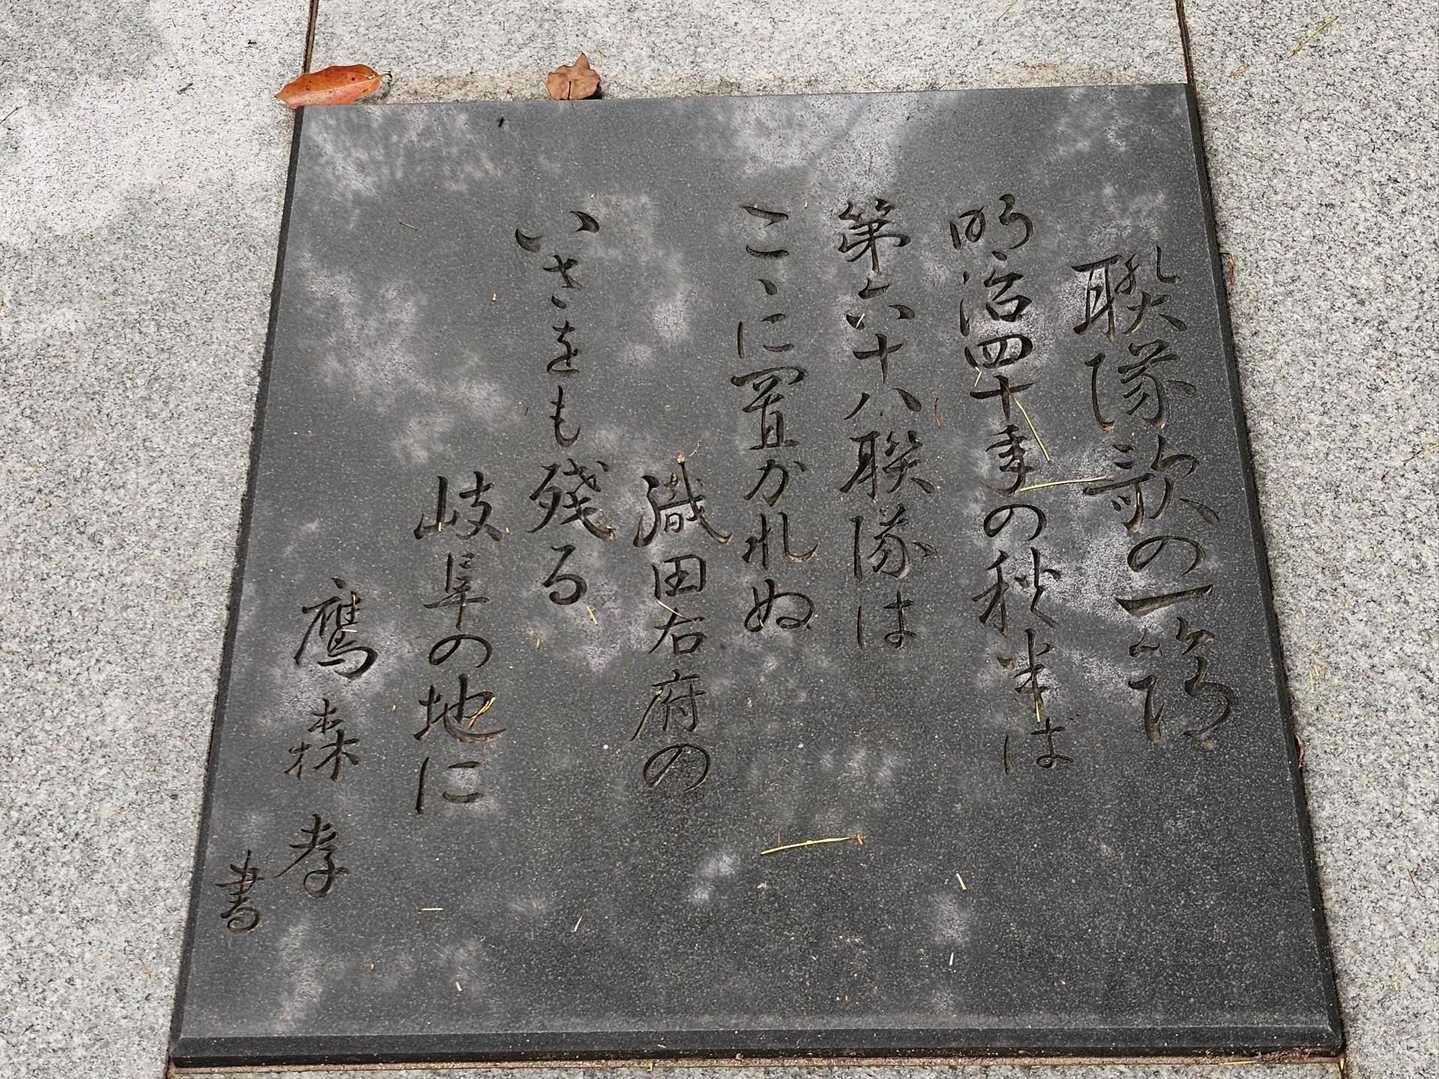 聨隊歌の一節
明治四十年の秋半ば
第六十八聨隊は
こゝに置かれぬ
織田右府の
いさをも残る
岐阜の地に
鷹森孝
書